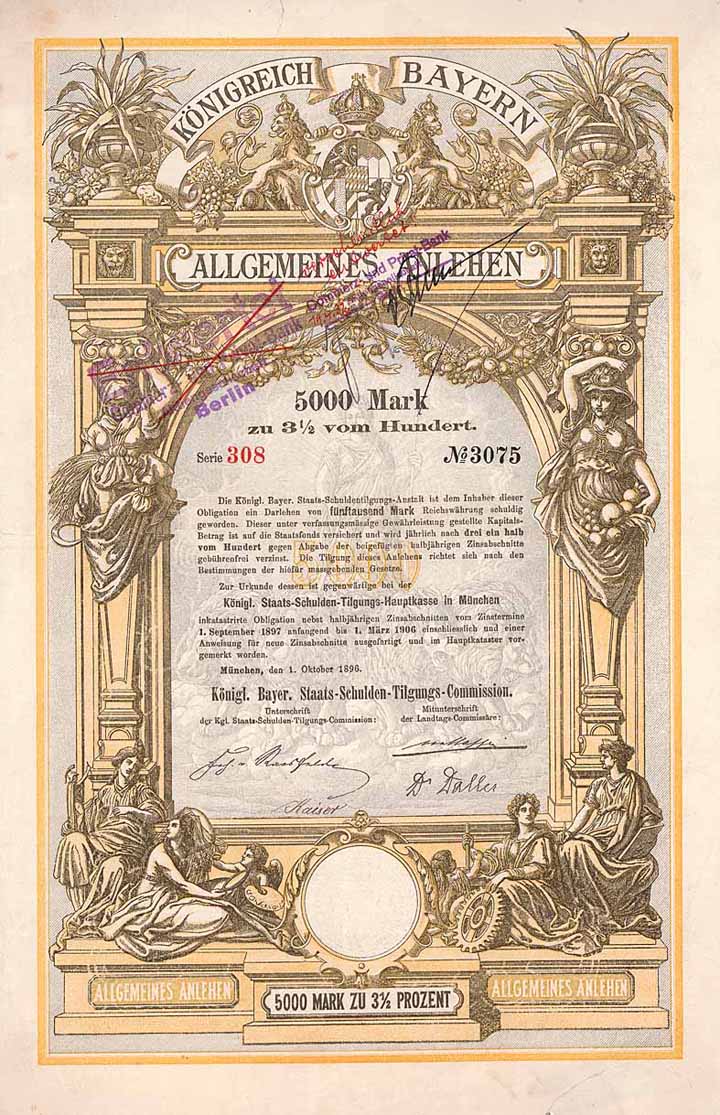 KÖNIGREICH BAYERN
ALLGEMEINES ANLEHEN
Commerz- und Privat-Bank
Berlin
5000 Mark
zu 3½ vom Hundert.
Serie 308 №3075
Die Königl. Bayer. Staats-Schuldentilgungs-Anstalt ist dem Inhaber dieser
Obligation ein Darlehen von fünftausend Mark Reichswährung schuldig
geworden. Dieser unter verfassungsmässige Gewährleistung gestellte Kapitals-
Betrag ist auf die Staatsfonds versichert und wird jährlich nach drei ein halb
vom Hundert gegen Abgabe der beigefügten halbjährigen Zinsabschnitte
gebührenfrei verzinst. Die Tilgung dieses Anlehens richtet sich nach den
Bestimmungen der hiefür massgebenden Gesetze.
Zur Urkunde dessen ist gegenwärtige bei der
Königl. Staats-Schulden-Tilgungs-Hauptkasse in München
inkatastrirte Obligation nebst halbjährigen Zinsabschnitten vom Zinstermine
1. September 1897 anfangend bis 1. März 1906 einschliesslich und einer
Anweisung für neue Zinsabschnitte ausgefertigt und im Hauptkataster vor-
gemerkt worden.
München, den 1. Oktober 1896.
Königl. Bayer. Staats-Schulden-Tilgungs-Commission.
Unterschrift Mitunterschrift
der Kgl. Staats-Schulden-Tilgungs-Commission: der Landtags-Commissäre:
Dr Daller
Kaiser
ALLGEMEINES ANLEHEN
5000 MARK ZU 3½ PROZENT
ALLGEMEINES ANLEHEN